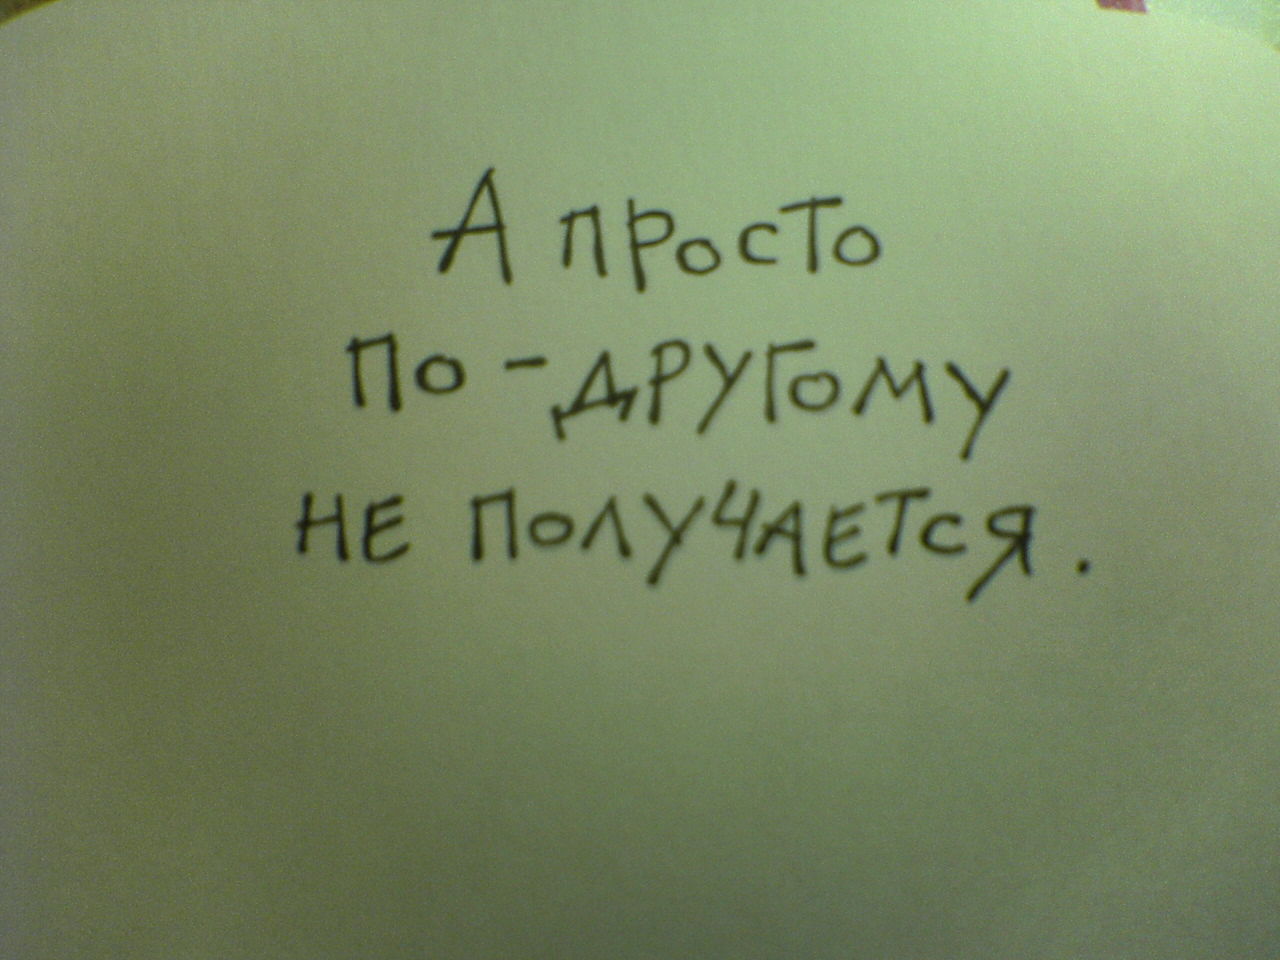 А просто
по-другому
не получается.